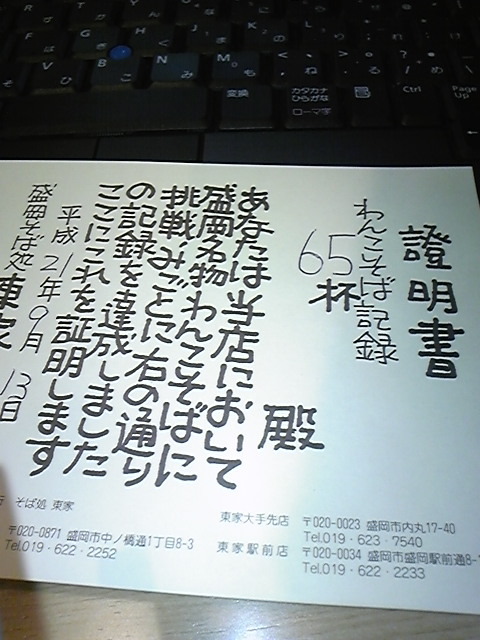 證明書
わんこそば記録
65杯
殿
あなたは当店において
盛岡名物わんこそばに
挑戦みごとに右の通り
の記録を達成しました
ここにこれを証明します
平成21年9月13日
盛岡そば処 東家
そば処 東家
〒020-0871 盛岡市中ノ橋通1丁目8-3
Tel.019・622・2252
東家大手先店 〒020-0023 盛岡市内丸17-40
Tel.019・623・7540
東家駅前店 〒020-0034 盛岡市盛岡駅前通8-
Tel.019・622・2233
変換
カタカナ
ひらがな
ローマ字
Ctrl
Page
Up